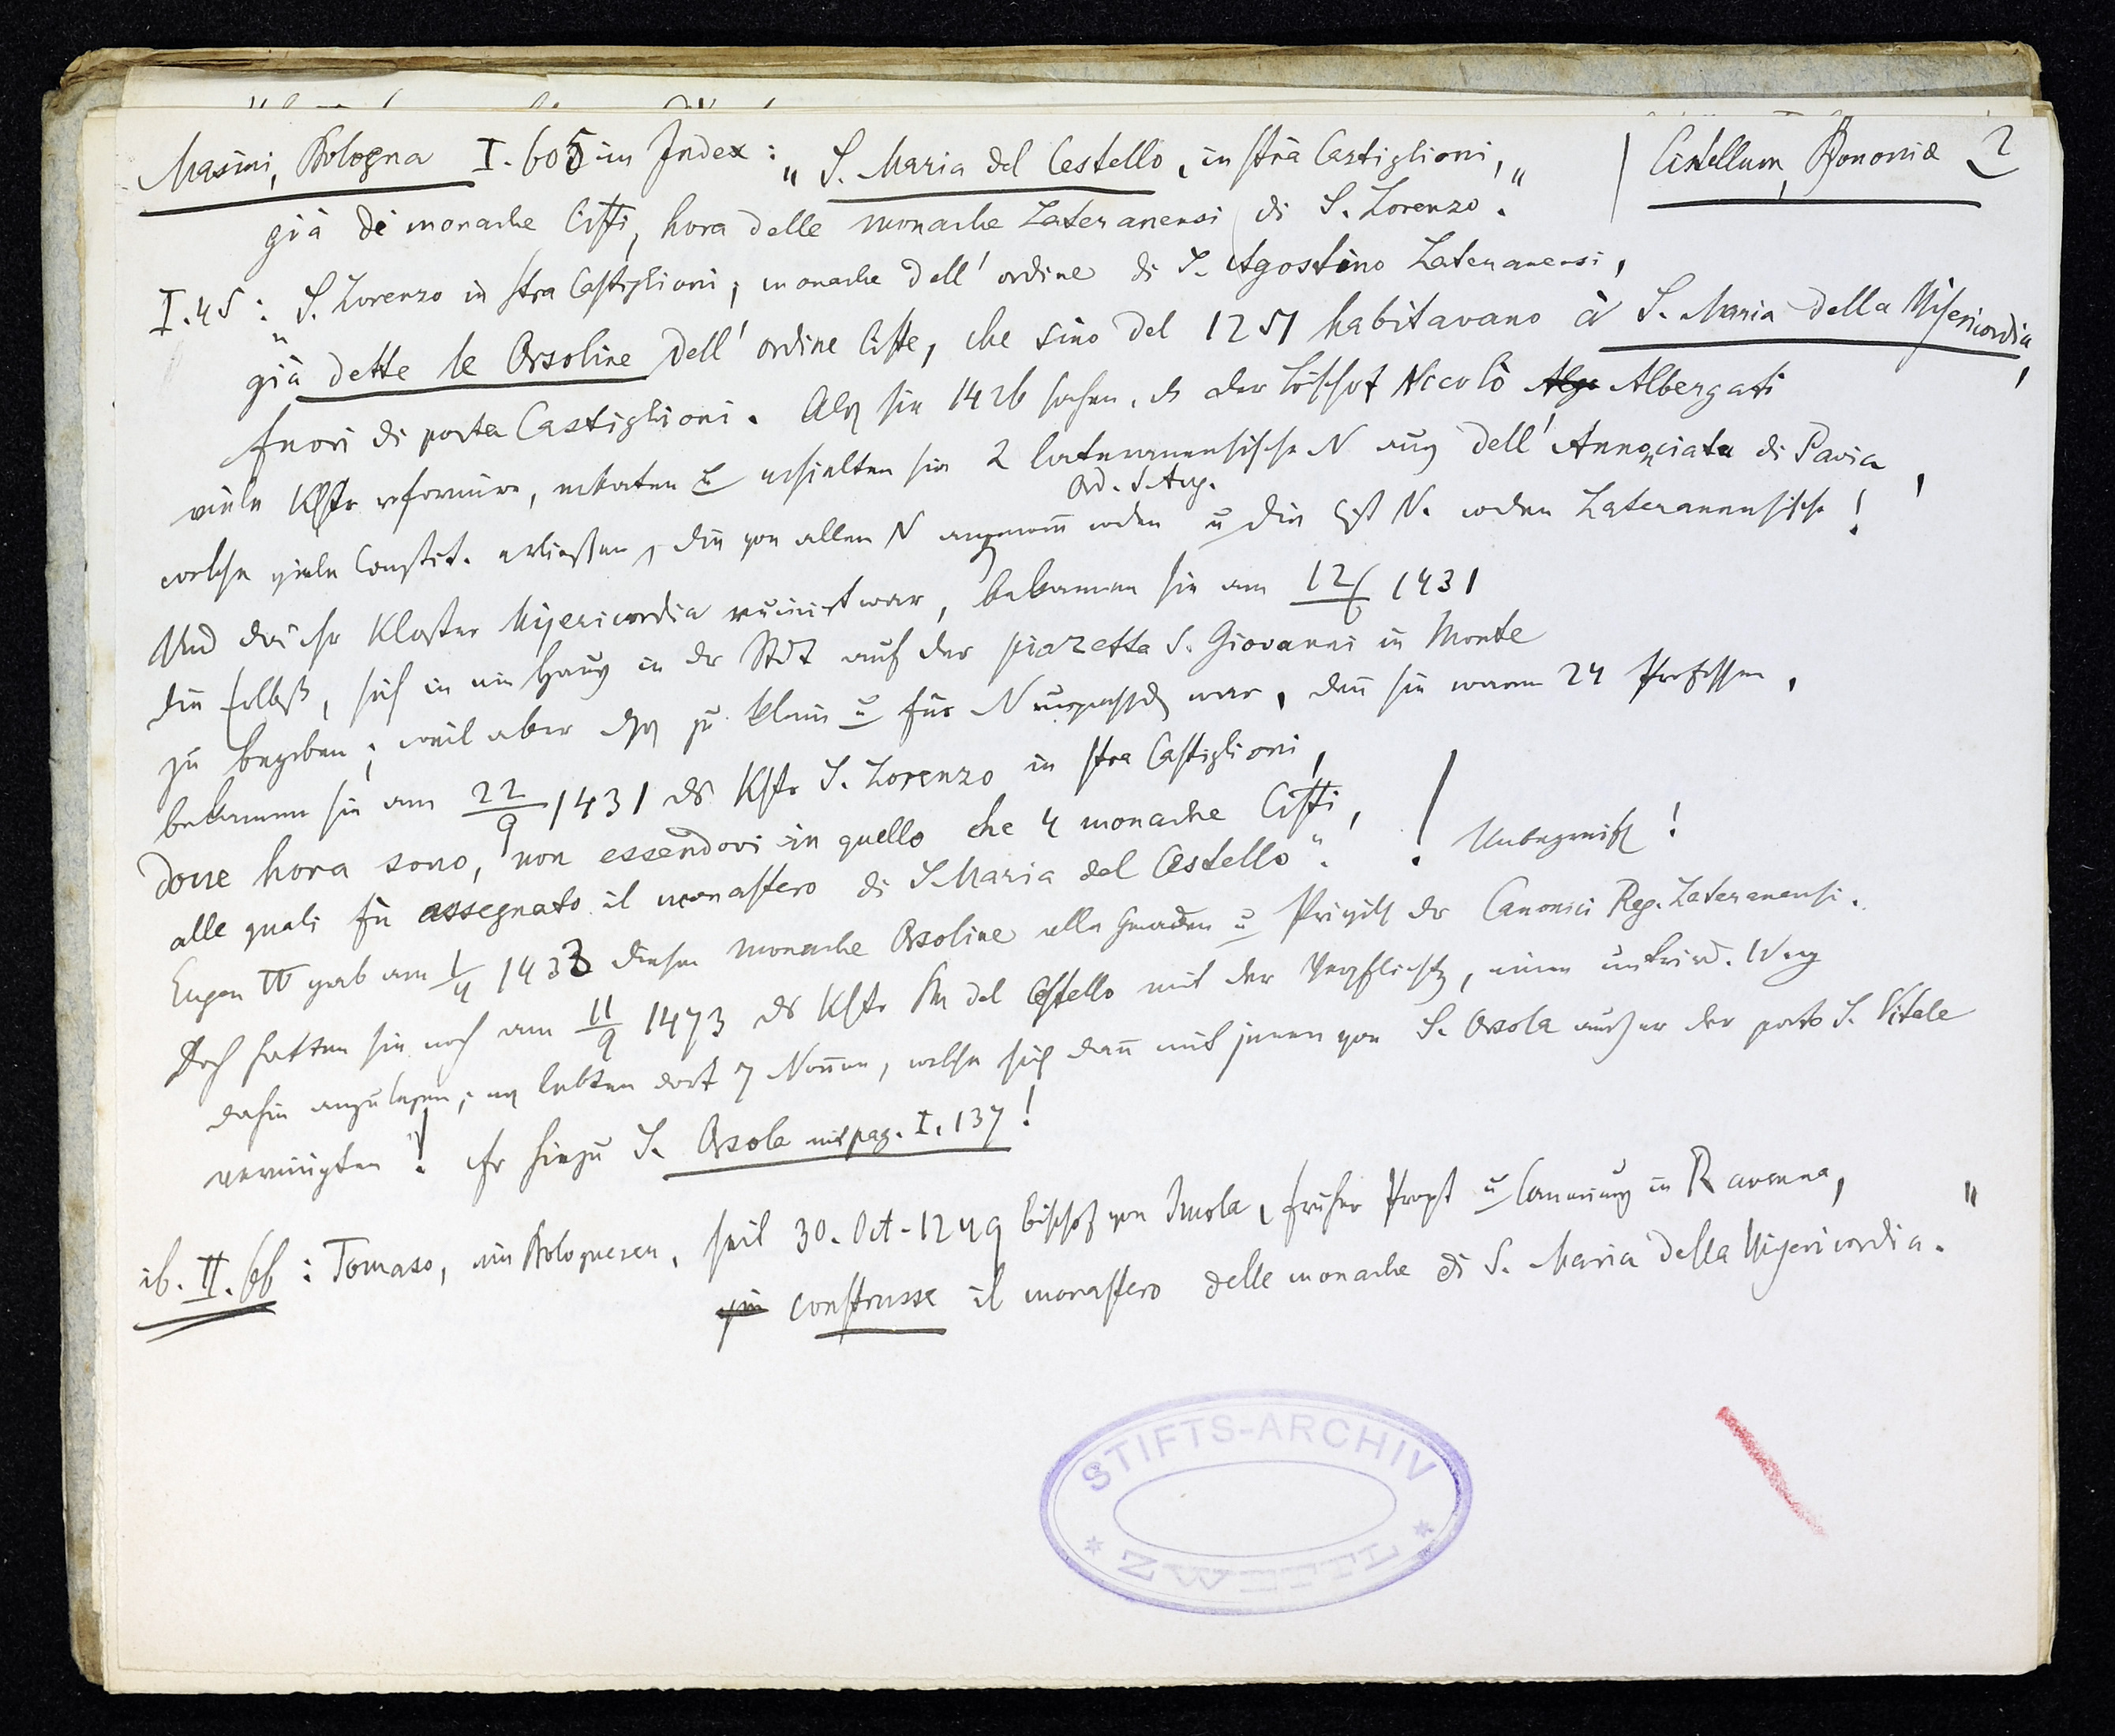 Masini, Bologna I. 605 im Index: „S. Maria del Cestello, in strà Castiglioni,“ | Cistellum, Bononiæ 2
già di monache Cisti, hora delle monache Lateranensi di S. Lorenzo.
I. 45: „S. Lorenzo in stra Castiglioni; monache dell' ordine di S. Agostino Lateranensi,
già dette le Orsoline dell' ordine Ciste, che sino del 1251 habitavano à S. Maria della Misericordia,
fuori di porta Castiglioni. Als sie 1426 sahen, ds der bischof Niccolò Albergati
viele Klstr reformire, erbaten u erhielten sie 2 lateranensische N aus dell' Annonciata di Pavia,
Ord. S. Aug.
welche viele Constit. erließen, die von allen N angenom̅ wden u die Cist N. wden Lateranensische!
Und da ihr Kloster Misericordia ruinirt war, bekamen sie am 12/6 1431
die Erlbß, sich in ein Haus in der Stdt auf der piazetta S. Giovanni in Monte
zu begeben; weil aber dss zu klein u für N unpassd war, den̅ sie waren 24 Professen,
bekamen sie am 22/9 1431 ds Klstr S. Lorenzo in stra Castiglioni,
dove hora sono, non essendovi in quello che 4 monache Cisti,
alle quali fù assegnato il monastero di S. Maria del Cestello“. ! Unbegreifl!
Eugen IV gab am 1/4 1433 diesen monache Orsoline alle Gnaden u Privil der Canonici Reg. Lateranensi.
Doch hatten sie noch am 11/9 1473 ds Klstr SM del Cestello mit der Verpflichtg, einen unterird. Weg
dahin anzulegen; es lebten dort 7 Nonnen, welche sich dan̅ mit jenen von S. Orsola außer der porta S. Vitale
vereinigten“! cfr hiezu S. Orsola mit pag. I. 137!
ib. II. 66: Tomaso, ein Bolognesen, seit 30. Oct. 1249 bischof von Imola, früher Propst u Canonicus in Ravenna,
„construsse il monastero delle monache di S. Maria della Misericordia.“
STIFTS-ARCHIV
* ZWETTL *